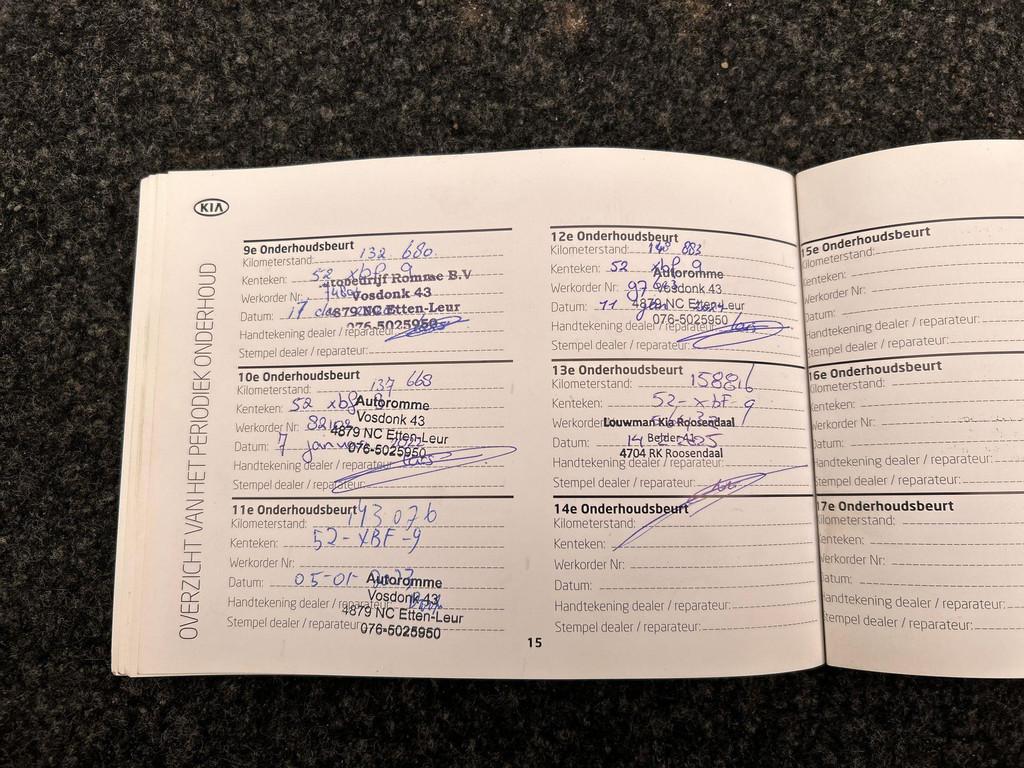 KIA
OVERZICHT VAN HET PERIODIEK ONDERHOUD
9e Onderhoudsbeurt
Kilometerstand: 132 680
Kenteken: 52 xbf 9
Werkorder Nr:
Datum: 17
Handtekening dealer / reparateur:
Stempel dealer / reparateur:
Autobedrijf Romme B.V
Vosdonk 43
4879 NC Etten-Leur
076-5025950
10e Onderhoudsbeurt
Kilometerstand: 137 668
Kenteken: 52 xbf
Werkorder Nr:
Datum: 7 januari
Handtekening dealer / reparateur:
Stempel dealer / reparateur:
Autoromme
Vosdonk 43
4879 NC Etten-Leur
076-5025950
11e Onderhoudsbeurt
Kilometerstand: 143 076
Kenteken: 52-XBF-9
Werkorder Nr:
Datum: 05-01-
Handtekening dealer / reparateur:
Stempel dealer / reparateur:
Autoromme
Vosdonk 43
4879 NC Etten-Leur
076-5025950
12e Onderhoudsbeurt
Kilometerstand: 148 883
Kenteken: 52 xbf 9
Werkorder Nr:
Datum: 11
Handtekening dealer / reparateur:
Stempel dealer / reparateur:
Autoromme
Vosdonk 43
4879 NC Etten-Leur
076-5025950
13e Onderhoudsbeurt
Kilometerstand: 158816
Kenteken: 52-xbF-9
Werkorder
Datum: 14
Handtekening dealer / reparateur:
Stempel dealer / reparateur:
Louwman Kia Roosendaal
4704 RK Roosendaal
14e Onderhoudsbeurt
Kilometerstand:
Kenteken:
Werkorder Nr:
Datum:
Handtekening dealer / reparateur:
Stempel dealer / reparateur:
15
15e Onderhoudsbeurt
Kilometerstand:
Kenteken:
Werkorder Nr:
Datum:
Handtekening dealer / reparateur:
Stempel dealer / reparateur:
16e Onderhoudsbeurt
Kilometerstand:
Kenteken:
Werkorder Nr:
Datum:
Handtekening dealer / reparateur:
Stempel dealer / reparateur:
17e Onderhoudsbeurt
Kilometerstand:
Kenteken:
Werkorder Nr:
Datum:
Handtekening dealer / reparateur:
Stempel dealer / reparateur: